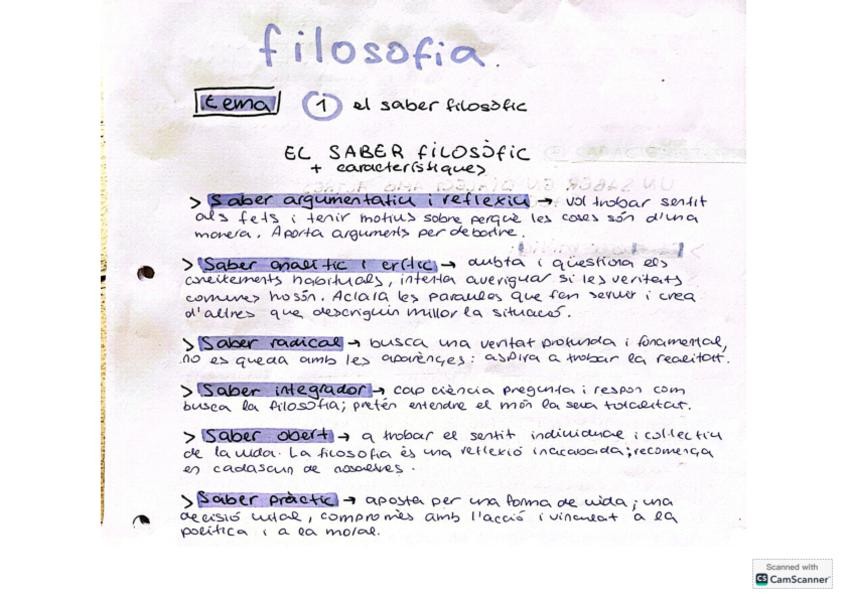 filosofia.
tema 1 el saber filosòfic
EL SABER FILOSÒFIC
+ característiques
> Saber argumentatiu i reflexiu → vol trobar sentit
als fets i tenir motius sobre perquè les coses són d'una
manera. Aporta arguments per debatre.
> Saber analític i crític → dubta i qüestiona els
coneitements habituals, intenta averiguar si les veritats
comunes ho són. Aclara les paraules que fem servir i crea
d'altres que descriguin millor la situació.
> Saber radical → busca una veritat profunda i fonamental,
no es queda amb les aparènçes: aspira a trobar la realitat.
> Saber integrador → cap ciència pregunta i respon com
busca la filosofia; pretén entendre el món la seva totalitat.
> Saber obert → a trobar el sentit individual i col·lectiu
de la vida. La filosofia és una reflexió inacabada; recomença
en cadascun de nosaltres.
> Saber pràctic → aposta per una forma de vida; una
decisió vital, compromès amb l'acció i vinculat a la
política i a la moral.
Scanned with
CS CamScanner